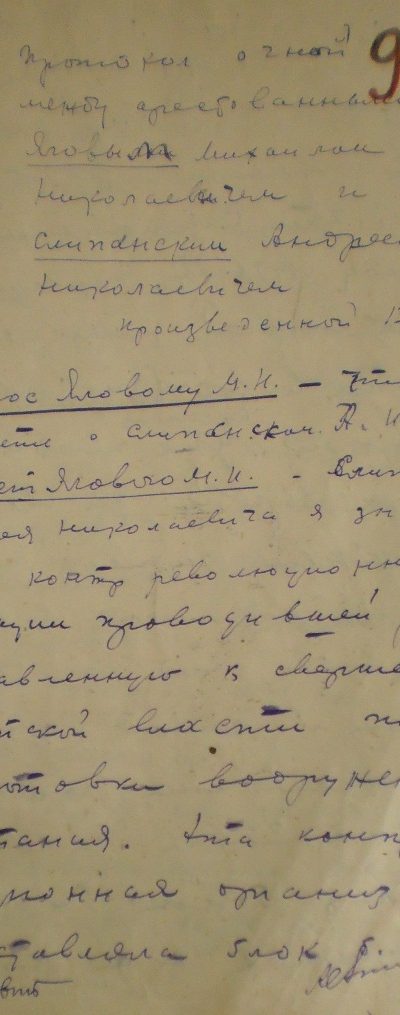 9
Протокол очной
между арестованным
Яговым Михаилом
Николаевичем и
Слипанским Андрее
Николаевичем
произведенной
ос Яговому М.Н. –
ети о Слипанском А. Н
ет Ягового М.Н. – Слип
ея Николаевича я зн
контрреволюционн
ции проводившей
авленную к сверже
тской власти п
отовки вооруже
тания. Эта конт
ионная организ
ставляла блок б